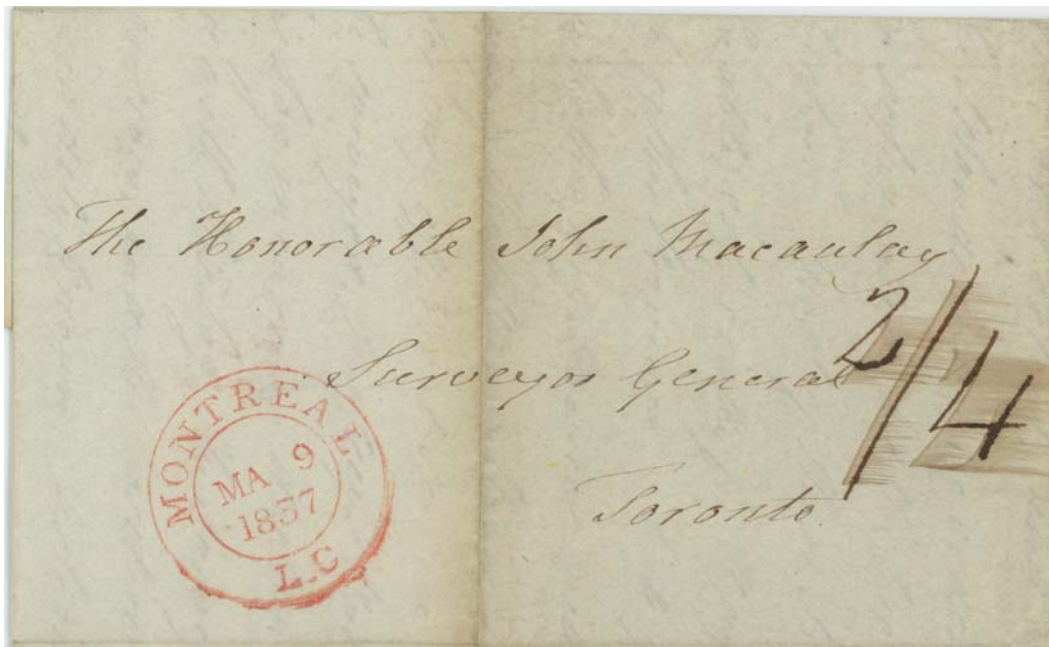 The Honorable John Macaulay
2/4
Surveyor General
Toronto
MONTREAL
MA 9
1837
L.C